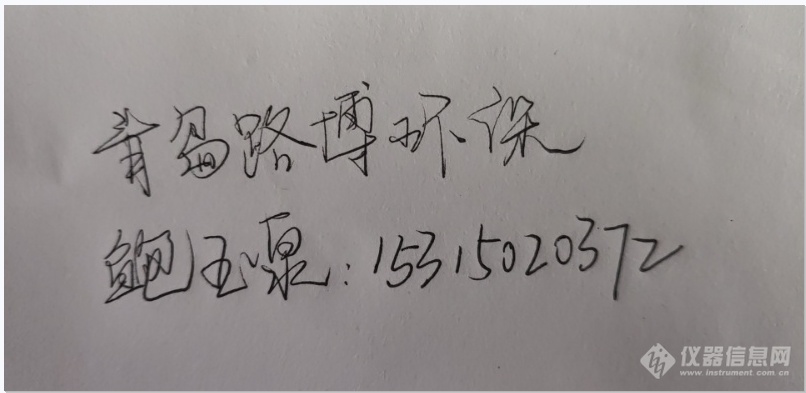 青岛路博环保
鲍玉泉：15315020372
仪器信息网
www.instrument.com.cn